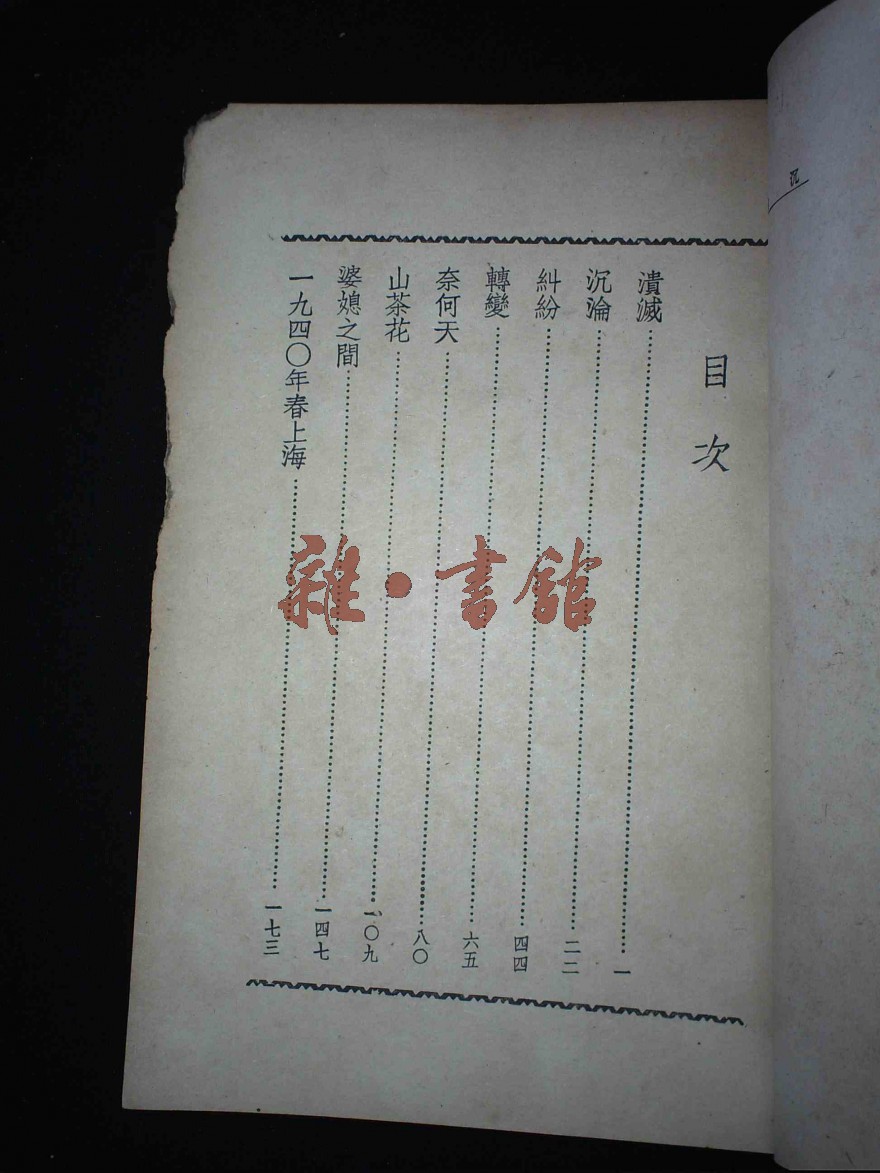 沉
目次
潰滅……一
沉淪……二二
糾紛……四四
轉變……六五
奈何天……八〇
山茶花……一〇九
婆媳之間……一四七
一九四〇年春上海……一七三
雜·書館